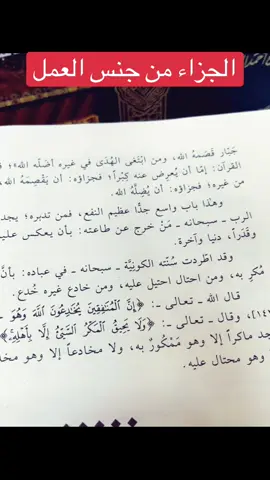 الجزاء من جنس العمل
جَبّار قَصَمَهُ الله، ومن ابْتَغَى الهُدَى في غيره أضلّه الله؛
القرآن: إمّا أن يُعرِض عنه كِبْراً؛ فجزاؤه: أن يَقْصِمَهُ الله،
من غيره؛ فجزاؤه: أن يُضِلَّهُ الله.
وهذا باب واسع جدًّا عظيم النفع، فمن تدبره؛ يجد
الرب ـ سبحانه ـ مَنْ خرج عن طاعته: بأن يعكس عليه
وقَدَراً، دنيا وآخرة.
وقد اطّردت سُنّته الكونِيَّة ـ سبحانه ـ في عباده: بأنّ
مُكِرَ به، ومن احتال احتيل عليه، ومن خادع غيره خُدِع.
قال الله ـ تعالى ـ: ﴿إِنَّ الْمُنَافِقِينَ يُخَادِعُونَ اللَّهَ وَهُوَ
وقال ـ تعالى ـ: ﴿وَلَا يَحِيقُ الْمَكْرُ السَّيِّئُ إِلَّا بِأَهْلِهِ﴾
جد ماكراً إلا وهو مَمْكُورٌ به، ولا مخادعاً إلا وهو مخا
وهو محتال عليه.